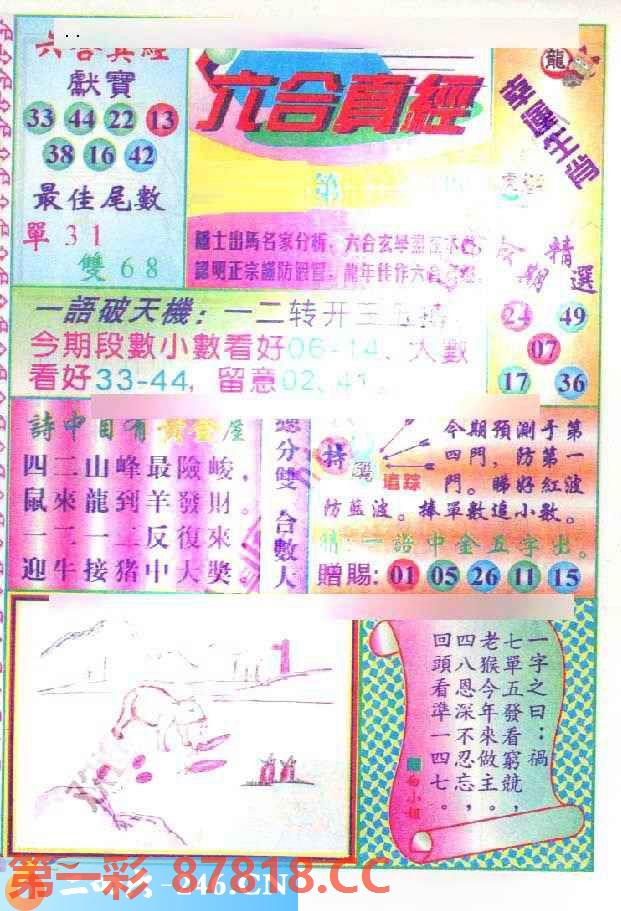 六合真經
獻寶
33 44 22 13
38 16 42
最佳尾數
單 3 1
雙 6 8
六合真經
龍
隱士出馬名家分析
六合玄學
認明正宗謹防
龍年佳作六合
期
精選
24 49
07
17 36
一語破天機：一二转开三五
今期段數小數看好06-14、大數
看好33-44，留意02、41。
詩中自有黃金屋
四二山峰最險峻，
鼠來龍到羊發財。
一二一二反復來，
迎牛接猪中大獎。
總分雙 合數大
特
追踪
今期預測于第
四門，防第一
門。睇好紅波
防藍波。捧單數追小數。
猜：一語中金五字出。
贈賜：01 05 26 11 15
1
一字之曰：禍
七單五發看窮兢，
老猴今年來做主。
四八恩深不忍忘，
回頭看準一四七。
白小姐
第一彩 87818.CC
246.CN